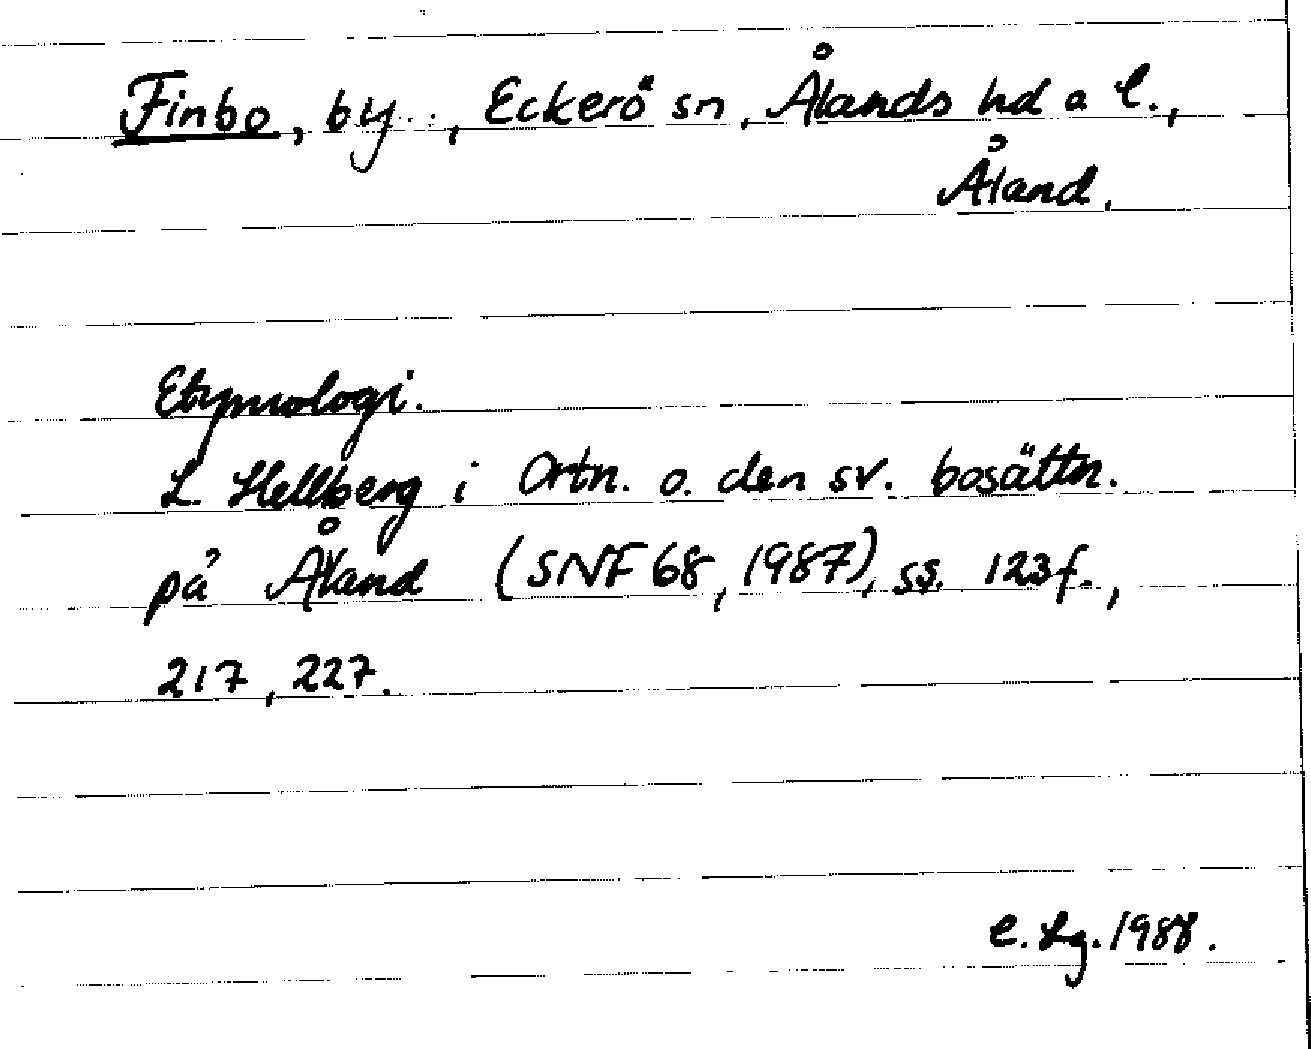 Finbo, by.., Eckerö sn, Ålands hd a l.,
Åland.
Etymologi.
L Hellberg i Ortn. o. den sv. bosättn.
på Åland (SNF 68, 1987), ss. 123f.,
217, 227.
e. Lg. 1988.